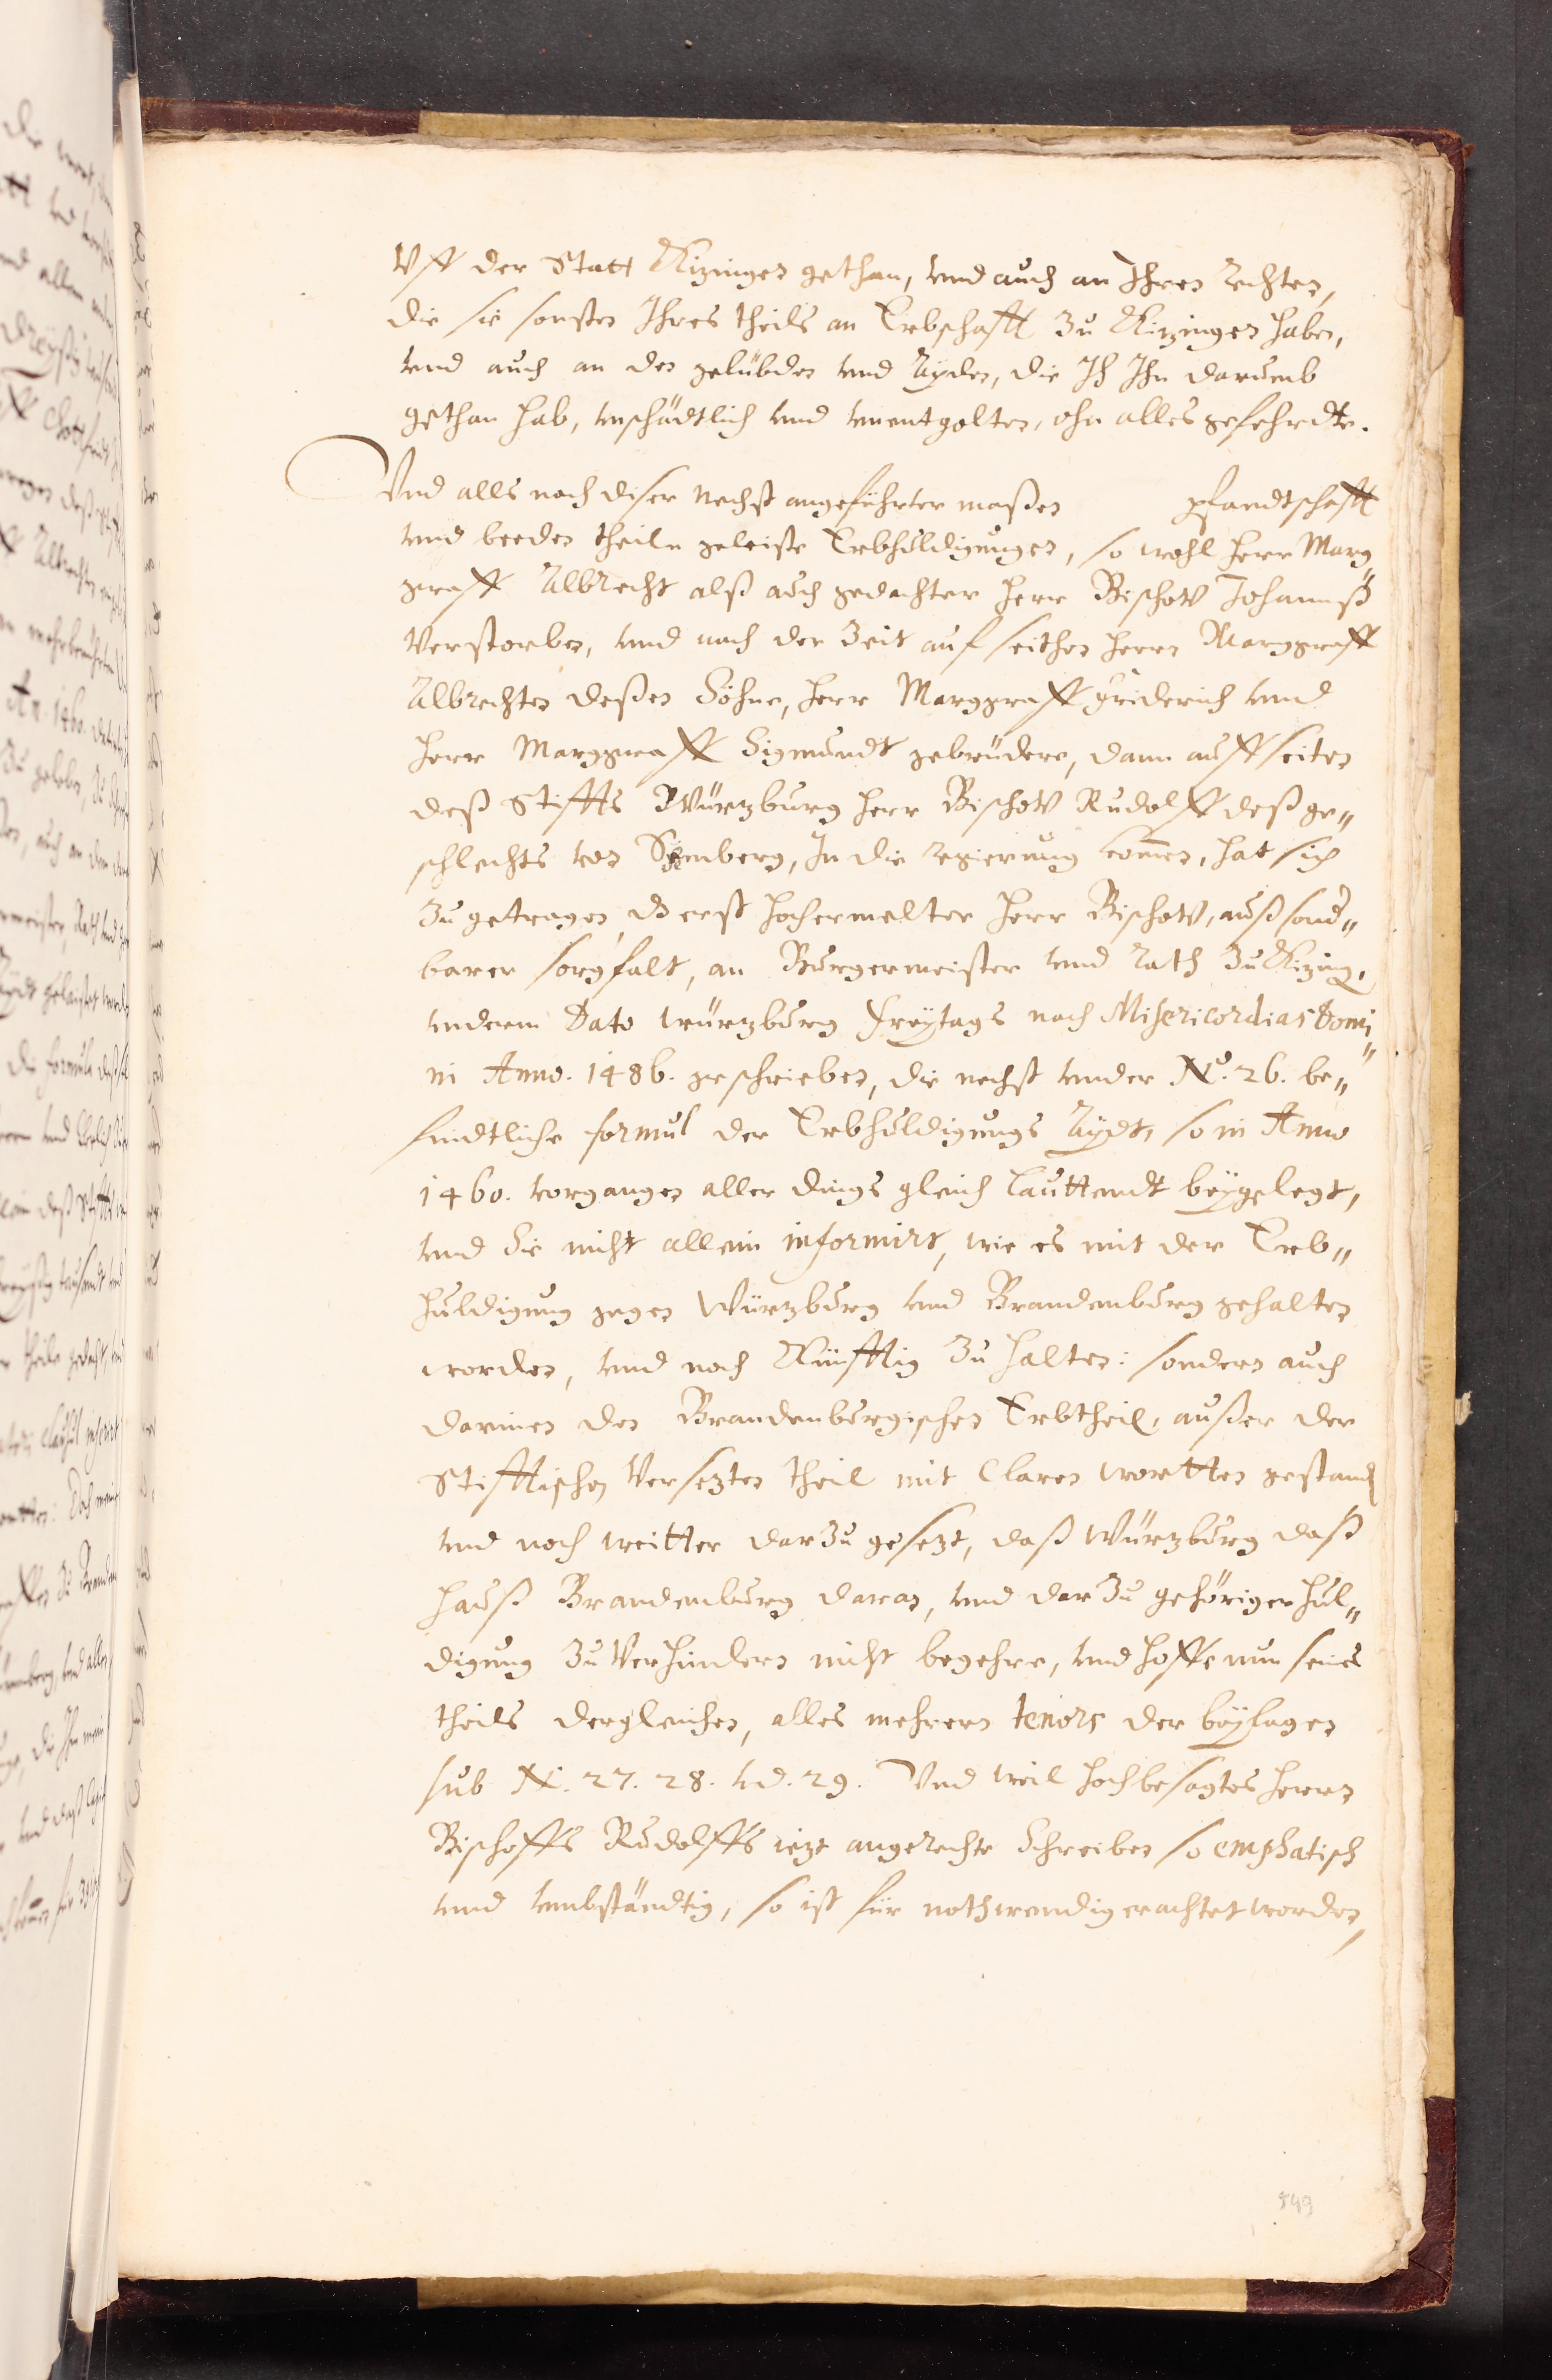 Vff der Statt Kizingen gethan, vnd auch an Ihren rechten,
die sie sonsten Ihres theils an Erbschafft zu Kitzingen haben,
vnd auch an den gelübden vnd Ayden, die Ich Ihn darumb
gethan hab, vnschädtlich vnd vnentgolten, ohn alles gefehrdte.
Vnd alls nach diser nechst angeführter maßen pfandtschafft
vnd beeden theiln geleiste Erbhuldigungen, so wohl herr Marg„
graff Albrecht alß auch gedachter herr Bischov Johannß
verstorben, vnd nach der Zeit auf seithen herrn Marggraff
Albrechten deßen Söhne, herr Marggraff Friderich vnd
herr Marggraff Sigmundt gebrüdere, dann auff seiten
deß Stiffts Würtzburg herr Bischov Rudolff deß ge„
schlechts von Scherenberg, In die regierung komen, hat sich
zugetragen, dz erst hochermelter herr Bischov, auß sond„
barer sorgfalt, an Burgermeister vnd Rath zu Kizing.
vnderm Dato würtzburg Freytags nach Misericordias Domi„
ni Anno. 1486. geschrieben, die nechst vnder No. 26. be„
findtliche formul der Erbhuldigungs Aydt, so in Anno
1460. vorgangen aller dings gleich lauttendt beygelegt,
vnd Sie nicht allein informirt, wie es mit der Erb„
huldigung gegen Würtzburg vnd Brandenburg gehalten
worden, vnd noch Künfftig zu halten: sondern auch
darinen den Brandenburgischen Erbtheil, außer der
Stifftischen versezten theil mit Claren wortten gestand
vnd noch weitter darzu gesezt, daß Würtzburg daß
hauß Brandenburg daran, vnd darzu gehöriger hul„
digung zu verhindern nicht begehre, vnd hoffe nun seines
theils dergleichen, alles mehrern tenors der beylagen
sub N. 27. 28. vnd. 29. Vnd weil hochbesagtes herrn
Bischoffs Rudolffs iezt angerechte Schreiben so emphatisch
vnd vmbständtig, so ist für nothwendig erachtet worden,
549